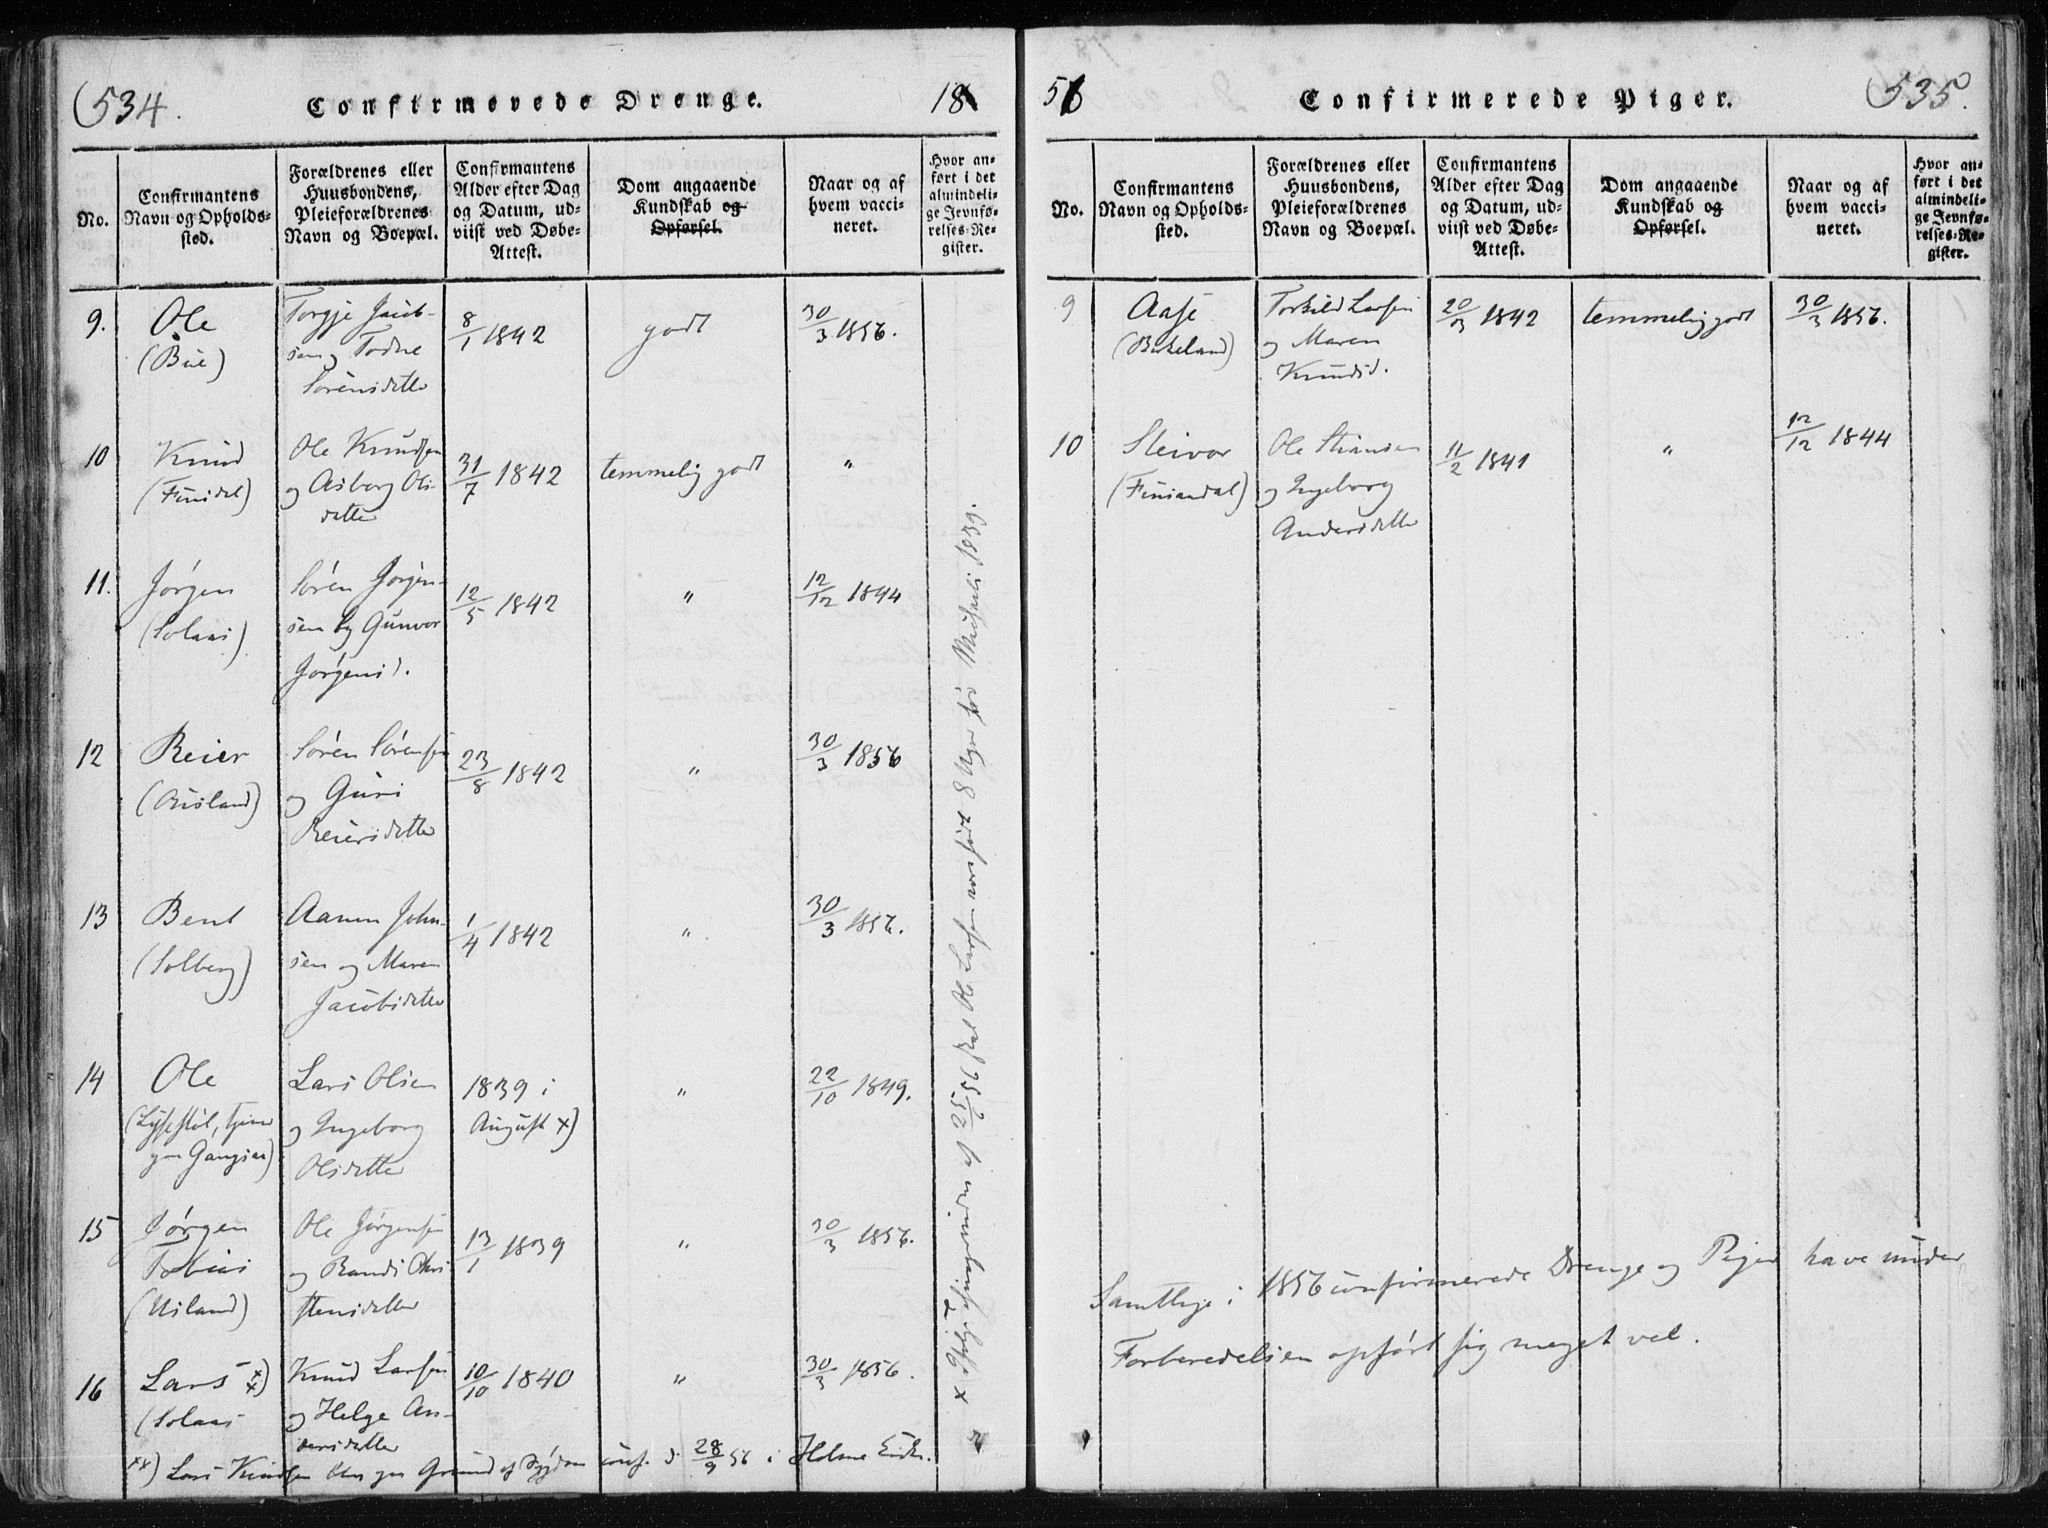 534.
Confirmerede Drenge.
18
No.
Confirmantens Navn og Opholds-sted.
Forældrenes eller Huusbondens, Pleieforældrenes Navn og Boepæl.
Confirmantens Alder efter Dag og Datum, ud-viist ved Døbe-Attest.
Dom angaaende Kundskab og Opførsel.
Naar og af hvem vacci-neret.
Hvor an-ført i det almindeli-ge Jevnfø-relses-Re-gister.
9.
Ole
(Bue)
Torgje Jacob-
sen og Todne
Sörensdatter
8/1 1842
godt
30/3 1856.
10
Knud
(Finsdal)
Ole Knudsen
og Asberg Ols-
datter
31/7 1842
temmelig godt
"
11.
Jörgen
(Solaas)
Sören Jörgen-
sen og Gunvor
Jörgensd.
12/5 1842
"
12/12 1844
12
Reier
(Ausland)
Sören Sörensen
og Guri
Reiersdatter
23/8 1842
"
30/3 1856
13
Bent
(Solberg)
Aanen John-
sen og Maren
Jacobsdatter
1/4 1842
"
30/3 1856.
14
Ole
Lars Olsen
og Ingeborg
Olsdatter
1839 i
August x)
"
22/10 1849.
15
Jörgen
Tobias
(Usland)
Ole Jörgensen
og Randi
stensdatter
13/1 1839
"
30/3 1856.
16
Lars xx)
(Solaas
Knud Larsen
og Helge An-
dersdatter
10/10 1840
"
30/3 1856.
xx) Lars Knudsen conf. d 28/9 56 i Holme
x af 25/6 56 skal Ole Larsen være födt 8 Uger för Michaeli 1839.
56
Confirmerede Piger.
535.
No.
Confirmantens Navn og Opholds-sted.
Forældrenes eller Huusbondens, Pleieforældrenes Navn og Boepæl.
Confirmantens Alder efter Dag og Datum, ud-viist ved Døbe-Attest.
Dom angaaende Kundskab og Opførsel.
Naar og af hvem vacci-neret.
Hvor an-ført i det almindeli-ge Jevnfø-relses-Re-gister.
9
Aase
(Birkeland)
Torkild Larsen
og Maren
Knudsd.
20/3 1842
temmelig godt
30/3 1856.
10
Sleivor
(Finsandal)
Ole Stiansen
og Ingeborg
Andersdatter
11/2 1841
"
12/12 1844
Samtlige i 1856 confirmerede Drenge og Piger have under
Forberedelsen opført sig meget vel.